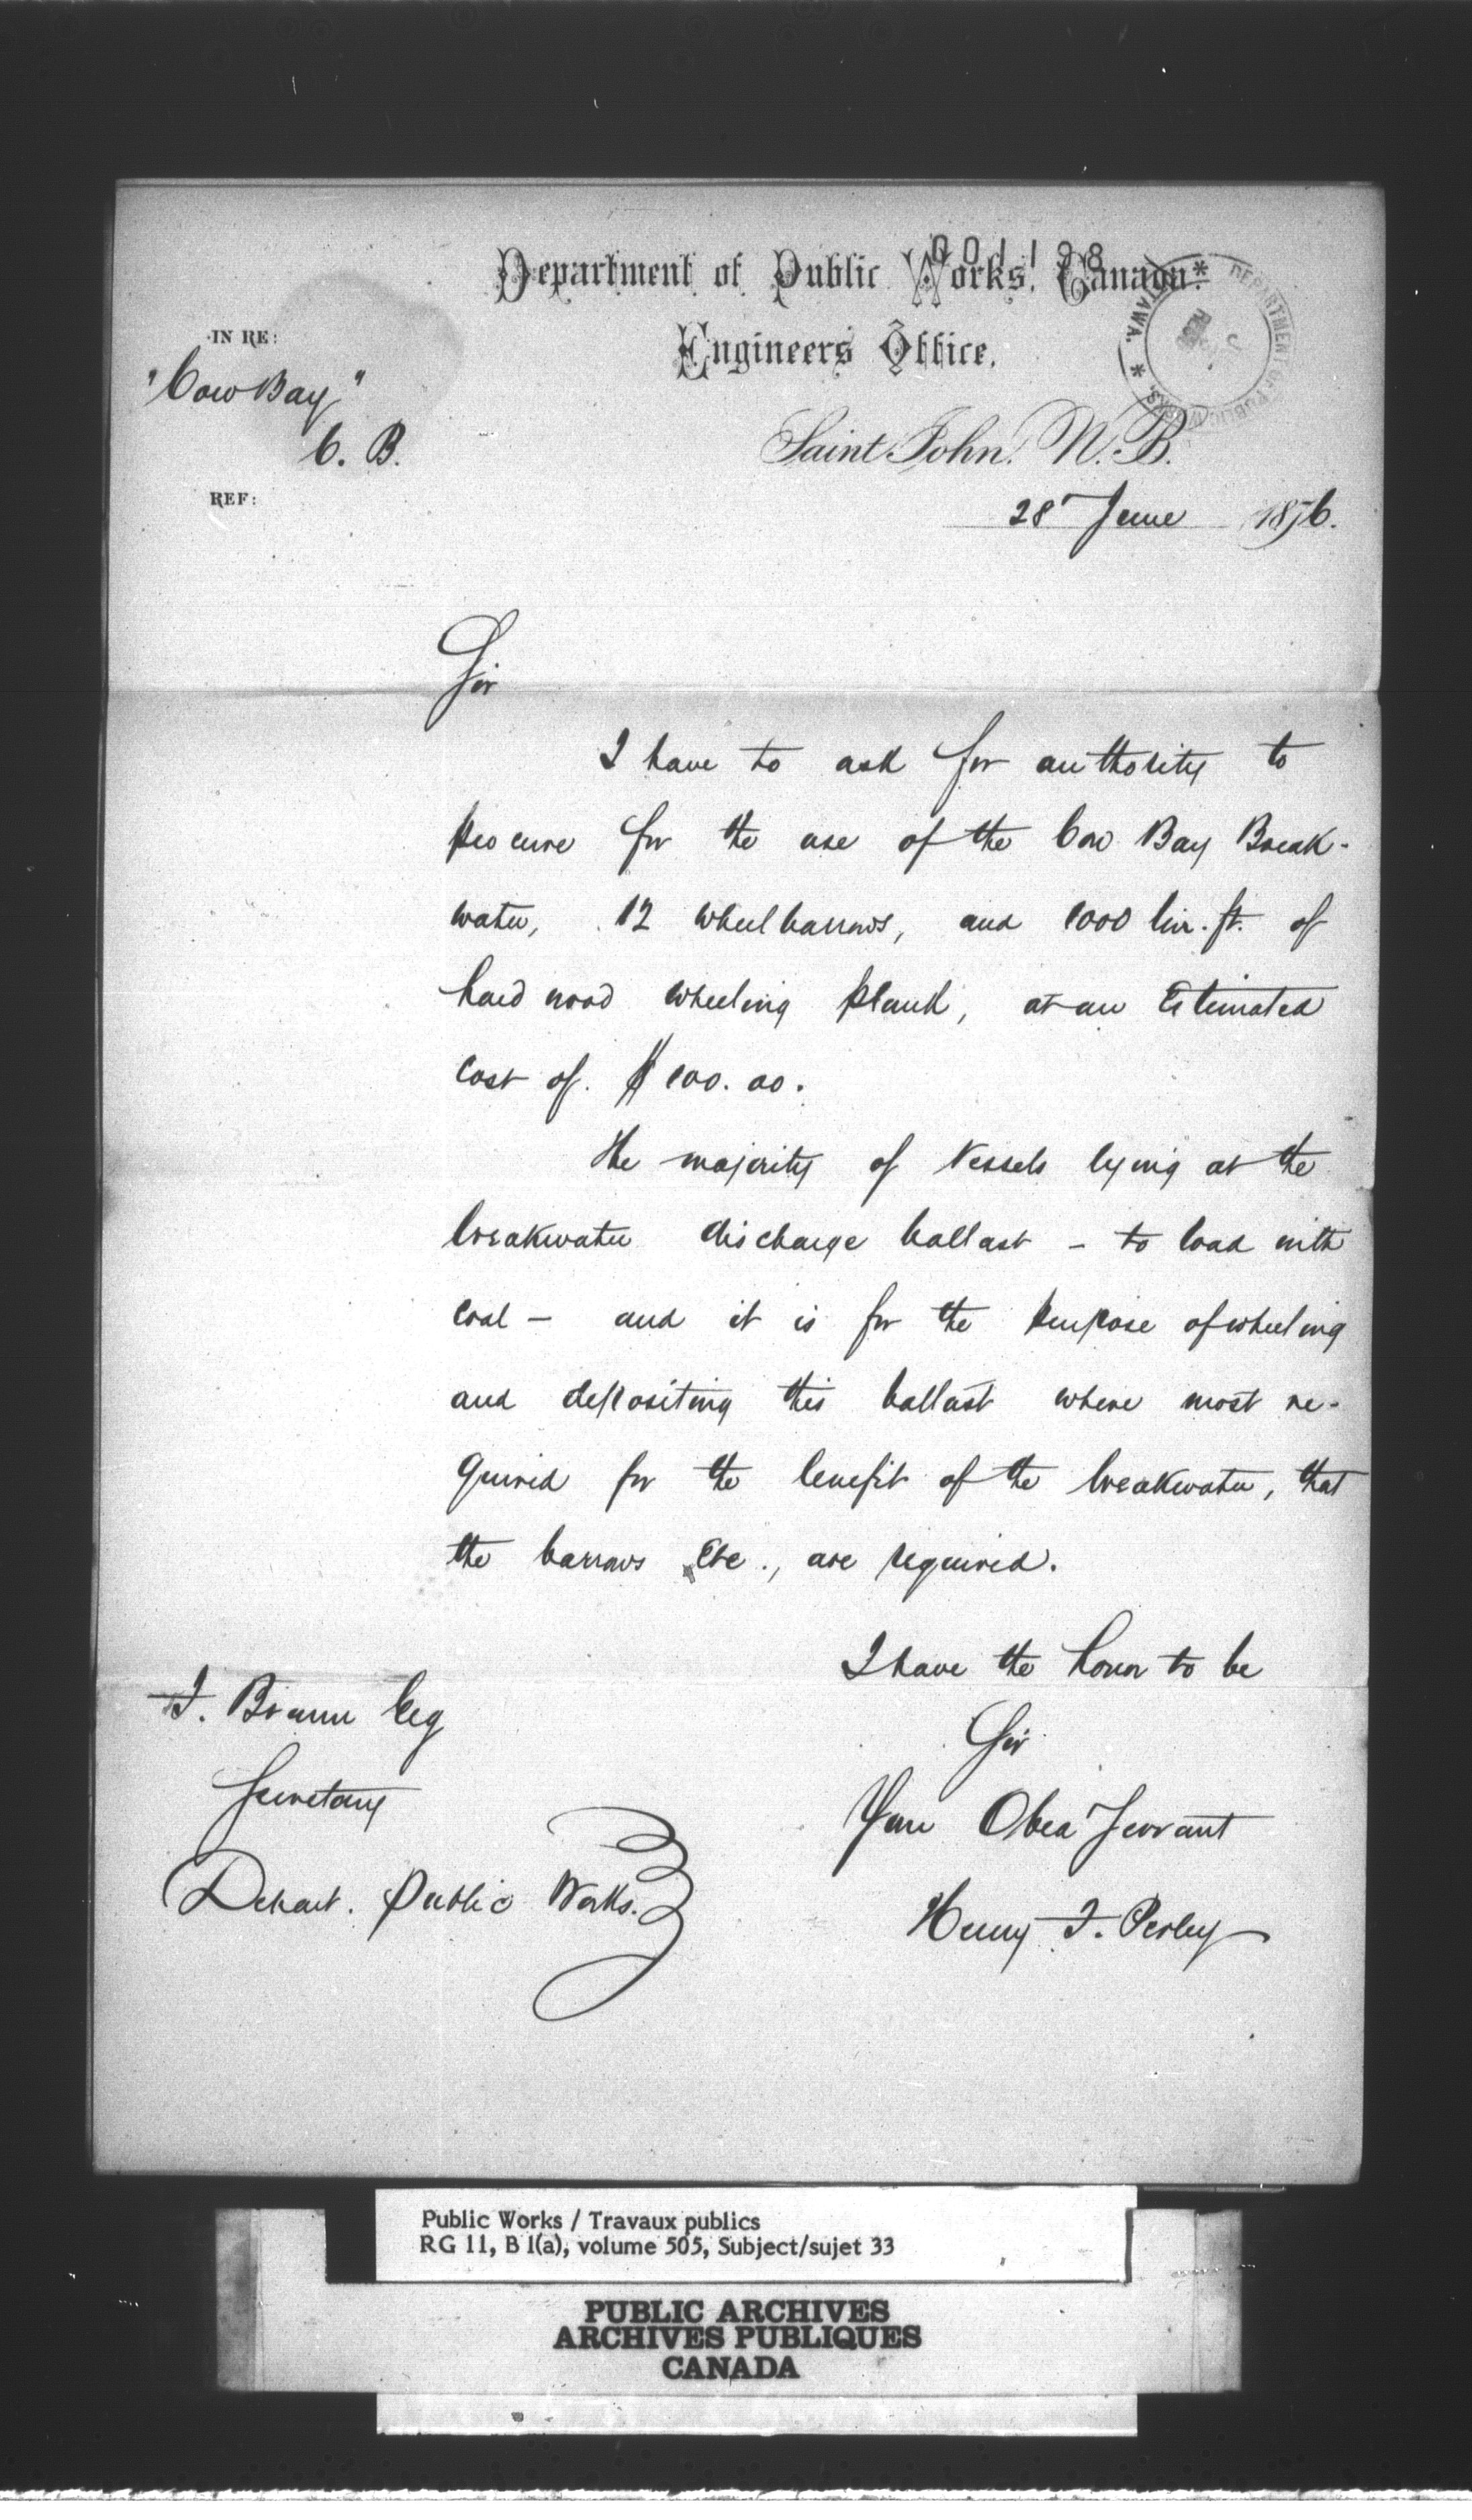 001198
Department of Public Works, Canada.
Engineers Office.
DEPARTMENT OF PUBLIC WORKS * OTTAWA. *
IN RE:
"Cow Bay"
C. B.
Saint John, N. B.
REF:
28 June 1876.
Sir
I have to ask for authority to
procure for the use of the Cow Bay Break-
water, 12 wheelbarrows, and 1000 lin. ft. of
hard wood wheeling plank, at an Estimated
cost of $100.00.
The majority of Vessels lying at the
breakwater discharge ballast - to load with
coal - and it is for the purpose of wheeling
and depositing this ballast where most re-
quired for the benefit of the breakwater, that
the barrows etc., are required.
I have the honor to be
Sir
Your Obed Servant
Henry F. Perley
F. Braun Esq
Secretary
Depart. Public Works.
Public Works / Travaux publics
RG 11, B 1(a), volume 505, Subject/sujet 33
PUBLIC ARCHIVES
ARCHIVES PUBLIQUES
CANADA